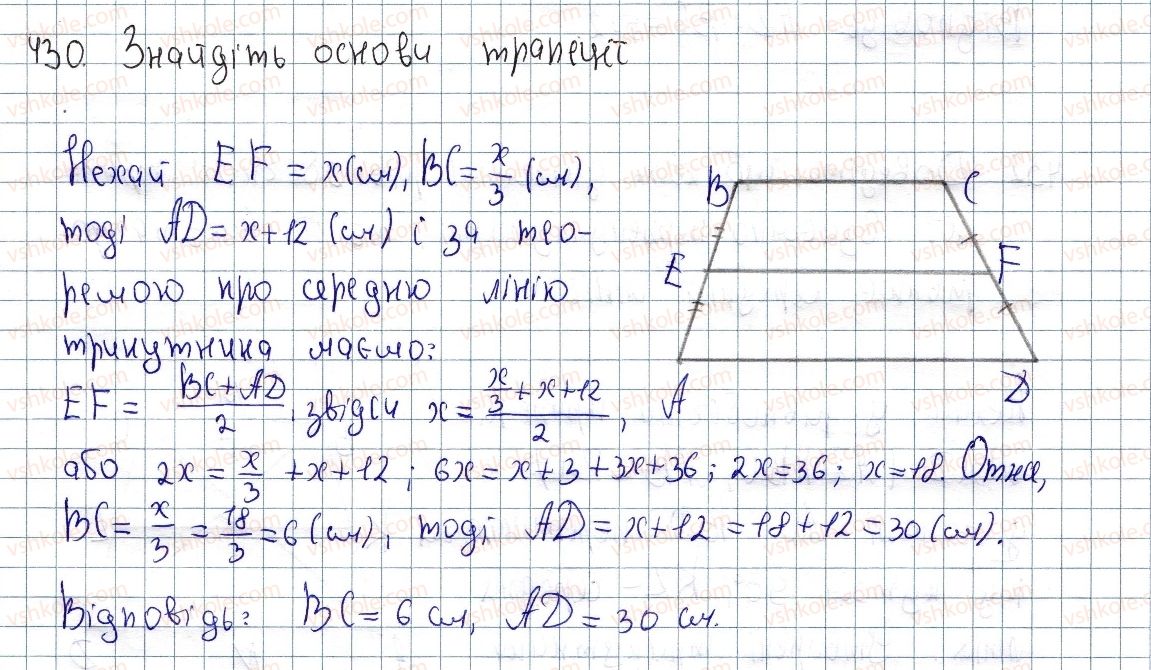 430. Знайдіть основи трапеції
Нехай EF = x(см), BC = x/3 (см),
тоді AD = x+12 (см) і за тео-
ремою про середню лінію
трикутника маємо:
EF = (BC + AD)/2, звідси x = (x/3 + x + 12)/2,
або 2x = x/3 + x + 12; 6x = x + 3 + 3x + 36; 2x = 36; x = 18. Отже,
BC = x/3 = 18/3 = 6 (см), тоді AD = x + 12 = 18 + 12 = 30 (см).
Відповідь: BC = 6 см, AD = 30 см.
B C
E F
A D
vshkole.com